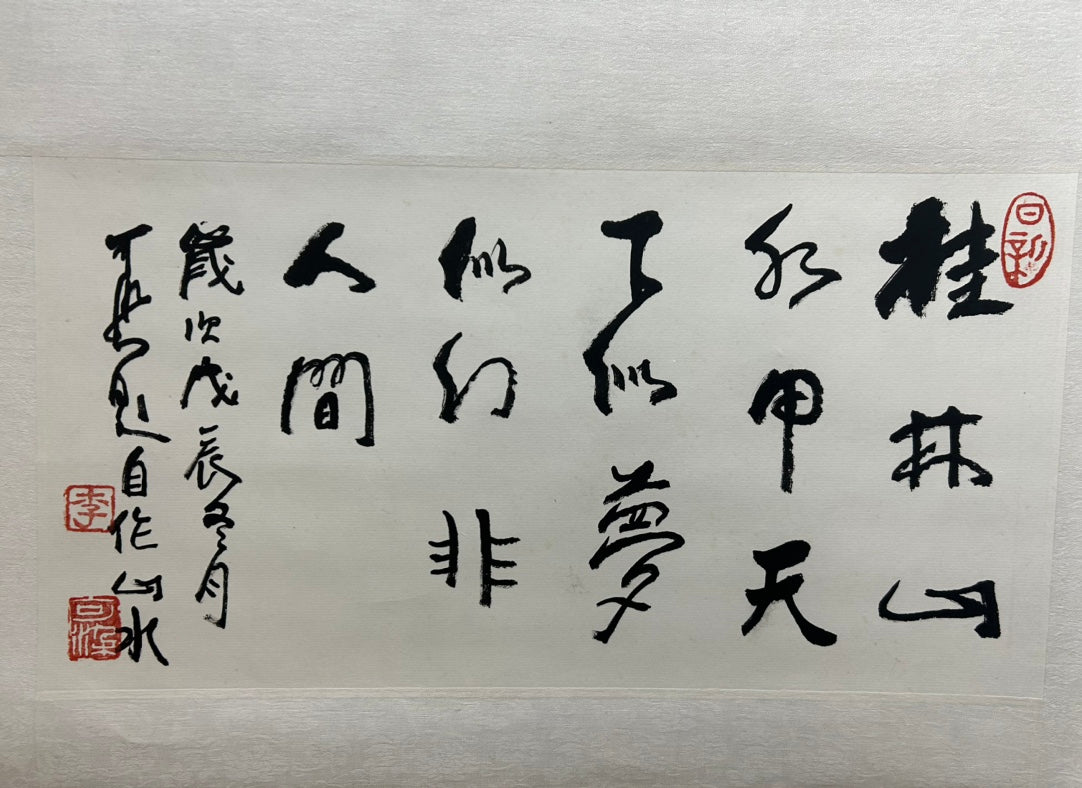 桂林山
水甲天
下似夢
似幻非
人間
歲次戊辰冬月
可染題自作山水
日新
李
可染